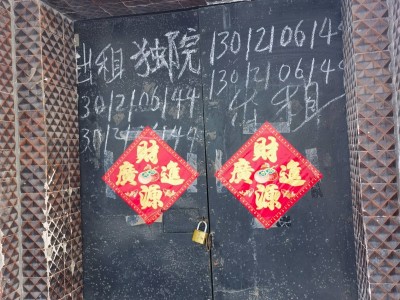 出租 独院 13012106144
13012106144
13012106144 出租
13012106144
財
廣進
源
財
廣進
源